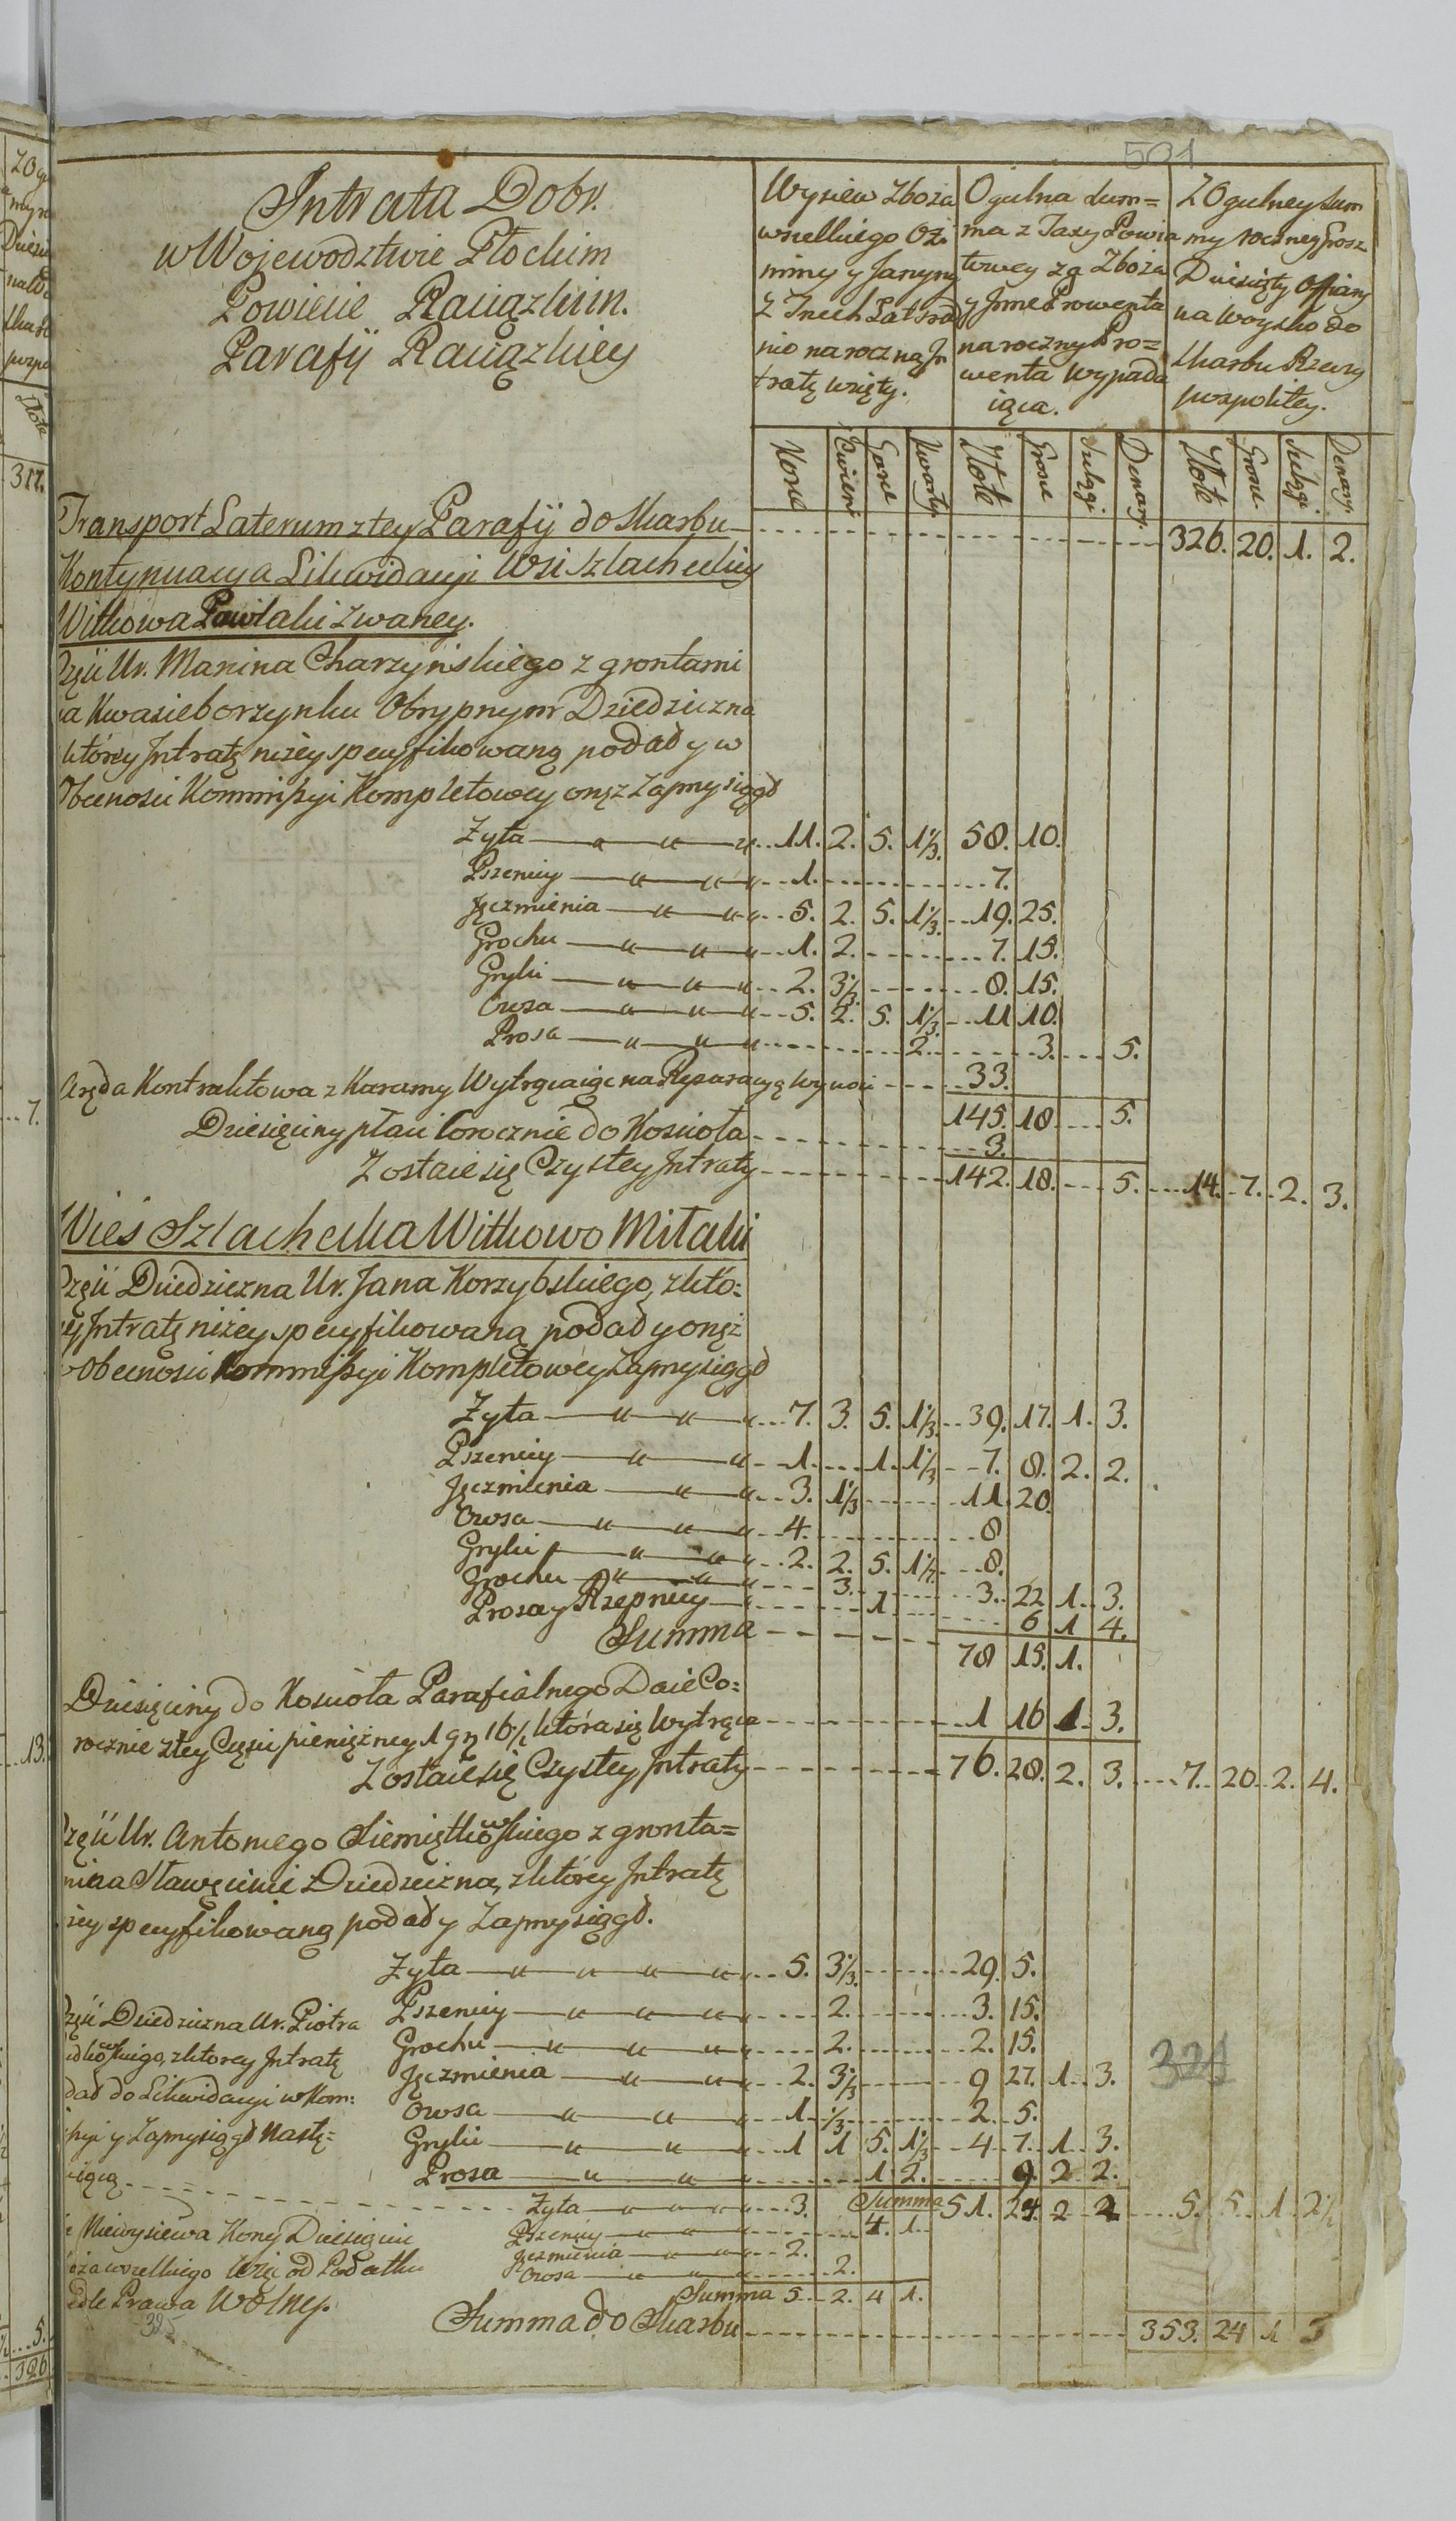 501
Intrata Dobr.
w Wojewodztwie Płockim
Powiecie Raciązkim.
Parafij Raciązkiey
Wysiew zboża
wszelkiego Ozi
miny y Jaryny
z Trzech Lat srzed
nio na roczną In
tratę wzięty.
Ogulna sum=
ma z Taxy Powia
towey za Zboża
y Jnne Prowenta
na roczny Pro=
wenta wypada
iąca.
Z Ogulney sum
my roczney Grosz
Dziesięty Offiary
na Woysko do
Skarbu Rzeczy
pospolitey.
Korce Cwierci Garce Kwarty Złote Grosze Szelągi Denary. Złote Grosze Szelągi Denary.
Transport Laterum z tey Parafij do Skarbu 326. 20. 1. 2.
Kontynuacya Likwidacyi Wsi Szlacheckiey
Witkowa Pawlaki zwaney.
Częsci Ur. Marcina Charzyńskiego z grontami
na Kwasieborzynku Obrypnym Dziedziczna
z ktorey Intratę nizey specyfikowaną podał y w
Obecnosci Kommissyi Kompletowey onęz zaprzysiągł
Zyta 11. 2. 5. 1 1/3. 58. 10.
Pszenicy 1. 7.
Jęczmienia 5. 2. 5. 1 1/3. 19. 25.
Grochu 1. 2. 7. 15.
Gryki 2. 3 1/3. 8. 15.
Owsa 5. 2. 5. 1 1/3. 11 10.
Prosa 2. 3. 5.
Aręda Kontraktowa z Karczmy Wytrąciaiąc na Reparacyą wynosi 33.
145. 18 5.
Dziesięciny płaci Corocznie do Kosciola 3.
Zostaie się Czystey Intraty 142. 18. 5. 14. 7. 2. 3.
Wies Szlachecka Witkowo Mitaki
Częsci Dziedziczna Ur. Jana Korzybskiego, z któ=
rey Intratę nizey specyfikowaną podał y onęż
w Obecnosci Kommissyi Kompletowey zaprzysiągł
Zyta 7. 3. 5. 1 1/3. 39. 17. 1. 3.
Pszenicy 1. 1. 1 1/3 7. 8. 2. 2.
Jęczmienia 3. 1 1/3 11. 20.
Owsa 4. 8
Gryki 2. 2. 5. 8.
Grochu 3. 3. 22 1. 3.
Prosa y Rzepnicy 1 6 1 4.
Summa 78 15. 1.
Dziesięciny do Kosciola Parafialnego Daie Co=
rocznie z tey Częsci pieniężney 1 gr 16 1/2 która się Wytrąca 1 16 1. 3.
Zostaie się Czystey Intraty 76. 28. 2. 3. 7. 20. 2. 4.
Częsci Ur. Antoniego Siemiątkowskiego z gronta=
mi na Sławęcinie Dziedziczna, z którey Intratę
specyfikowaną podał y Zaprzysiągł.
Zyta 5. 3 1/3. 29. 5.
Pszenicy 2. 3. 15.
Grochu 2. 2. 15.
Jęczmienia 2. 3 1/3 9 27. 1. 3.
Owsa 1 1/3 2. 5.
Gryki 1 1 5. 1 1/3 4 7. 1. 3.
Prosa 1 2. 9. 2 2.
Summa 51. 24. 2 2 5. 5. 1 2 1/2
Częsci Dziedziczna Ur. Piotra
z ktorey Intratę
podał do Likwidacyi w Kom:
missyi y Zaprzysiągł Nastę=
puiącą
Zyta 3.
Pszenicy 4. 1.
Jęczmienia 2.
Owsa 2.
Summa 5. 2. 4 1.
Niewysiewa Korcy Dziesięciu
zboża wszelkiego Więc od Podatku
podle Prawa Wolney.
324
Summa do Skarbu 353. 24 1 3